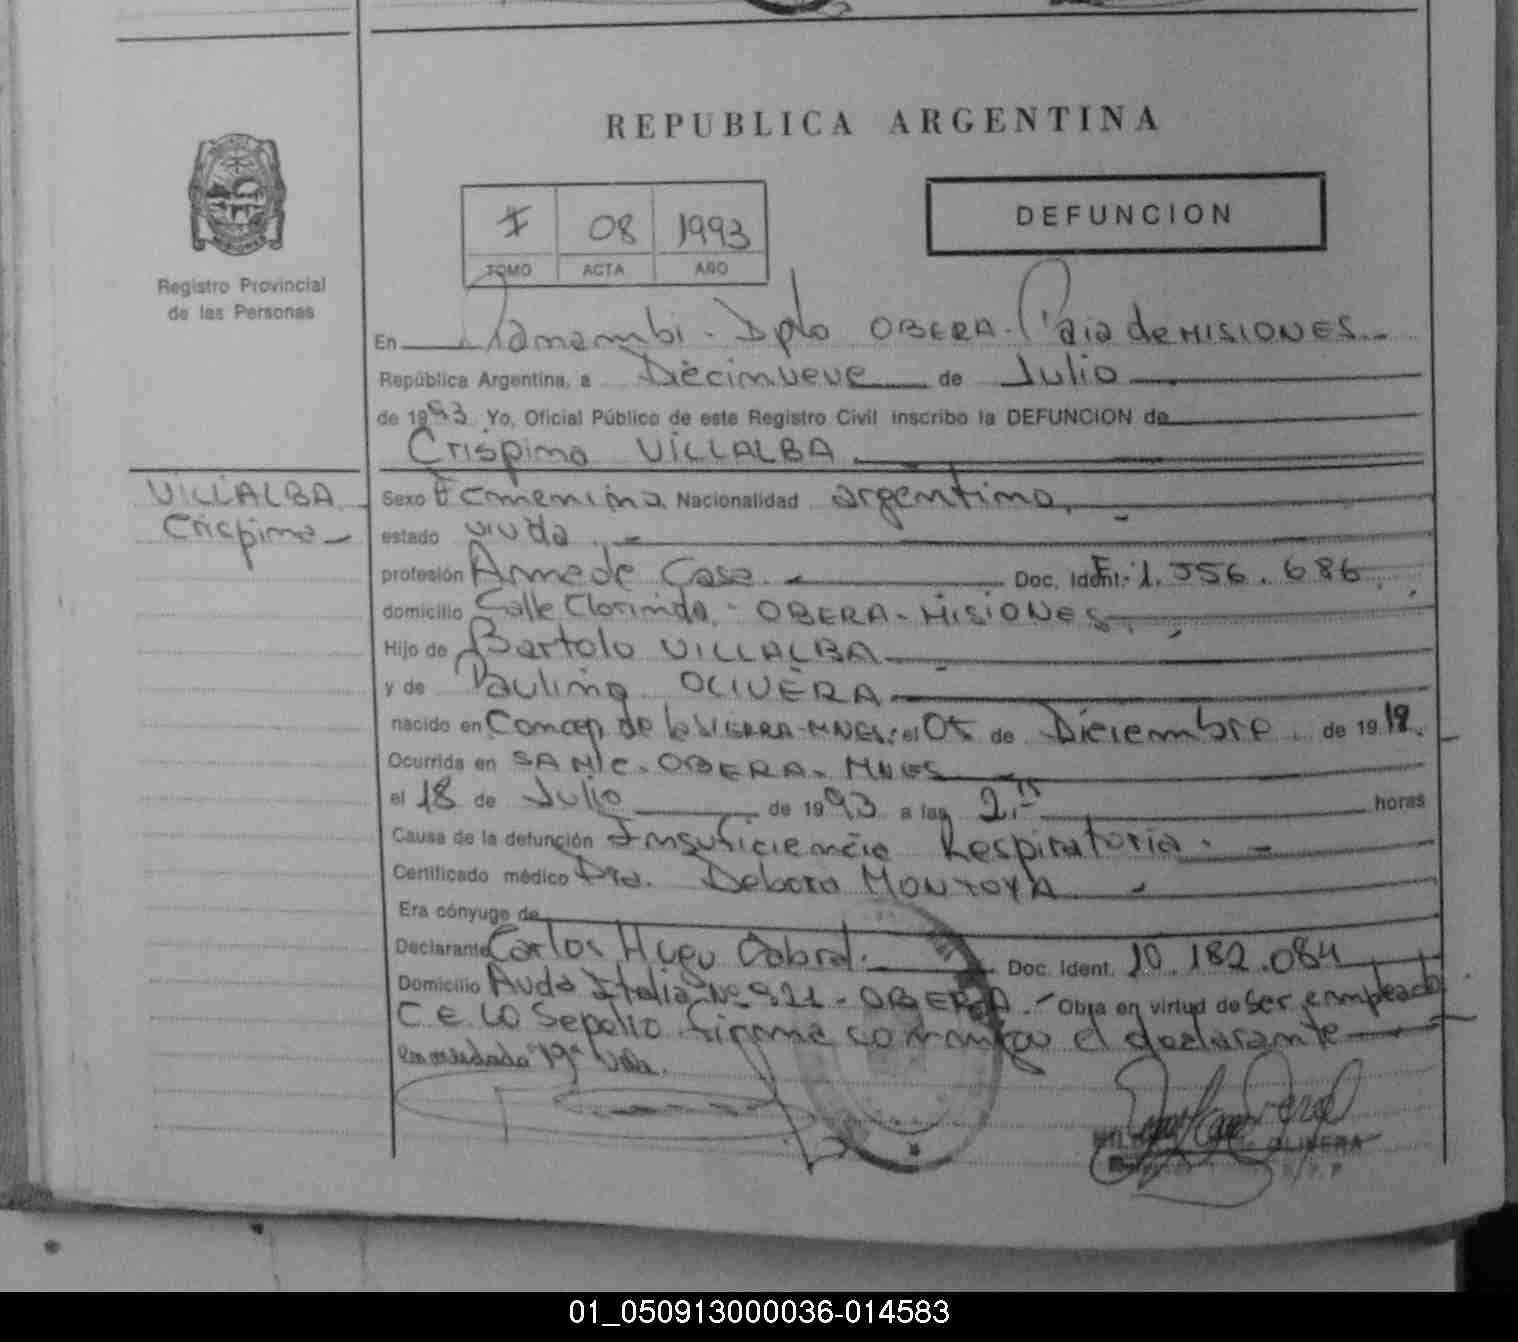 REPUBLICA ARGENTINA
I 08 1993
TOMO ACTA AÑO
DEFUNCION
Registro Provincial
de las Personas
En Panambi - Dpto OBERA - Pcia de MISIONES
República Argentina, a Diecinueve de Julio
de 1993 Yo, Oficial Público de este Registro Civil inscribo la DEFUNCION de
Crispina VILLALBA
VILLALBA
Crispina
Sexo Femenina Nacionalidad argentina
estado viuda
profesión Ama de Casa Doc. Ident. F. 1.556.686
domicilio Calle Clorinda - OBERA - MISIONES
Hijo de Bartolo VILLALBA
y de Paulina OLIVERA
nacido en Concep. de la SIERRA - MNES. el 05 de Diciembre de 1918
Ocurrida en SAMIC - OBERA - MNES
el 18 de Julio de 1993 a las 2,15 horas
Causa de la defunción Insuficiencia Respiratoria
Certificado médico Dra. Debora MONTOYA
Era cónyuge de
Declarante Carlos Hugo Cabral Doc. Ident. 10.182.084
Domicilio Avda Italia Nº 921 - OBERA - Obra en virtud de ser empleado
C.E.L.O Sepelio firma conmigo el declarante
enmendado 19
OLIVERA
01_050913000036-014583